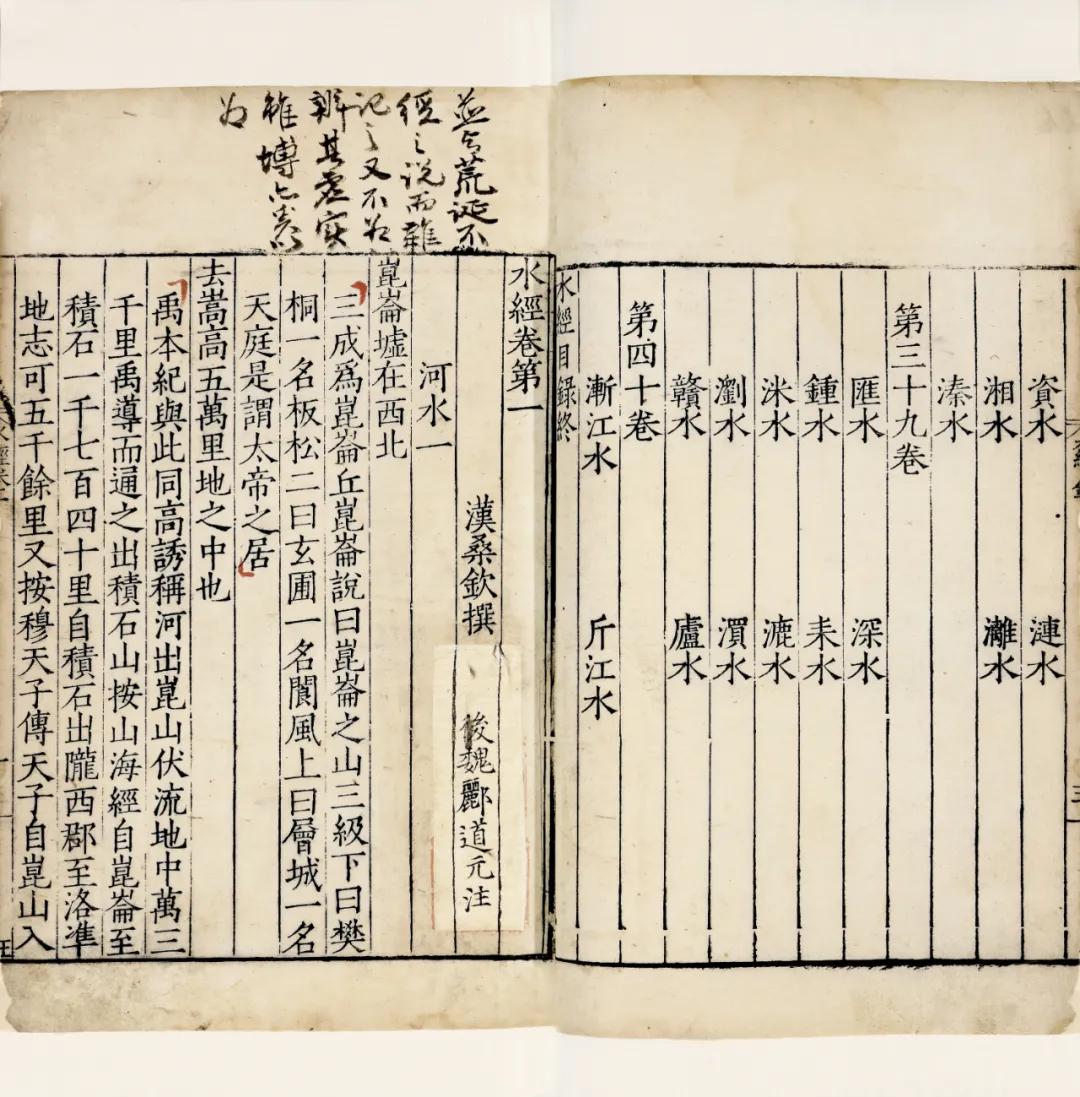 資水 漣水
湘水 灕水
溱水
第三十九卷
匯水 深水
鍾水 耒水
洣水 漉水
瀏水 潣水
贛水 廬水
第四十卷
漸江水 斤江水
水經目錄終
水經卷第一
漢桑欽撰 後魏酈道元注
河水一
崑崙墟在西北
三成爲崑崙丘崑崙說曰崑崙之山三級下曰樊
桐一名板松二曰玄圃一名閬風上曰層城一名
天庭是謂太帝之居
去嵩高五萬里地之中也
禹本紀與此同高誘稱河出崑山伏流地中萬三
千里禹導而通之出積石山按山海經自崑崙至
積石一千七百四十里自積石出隴西郡至洛準
地志可五千餘里又按穆天子傳天子自崑山入
荒誕不
經之說而雜
記之又不
辨其虛實
雖博亦
为